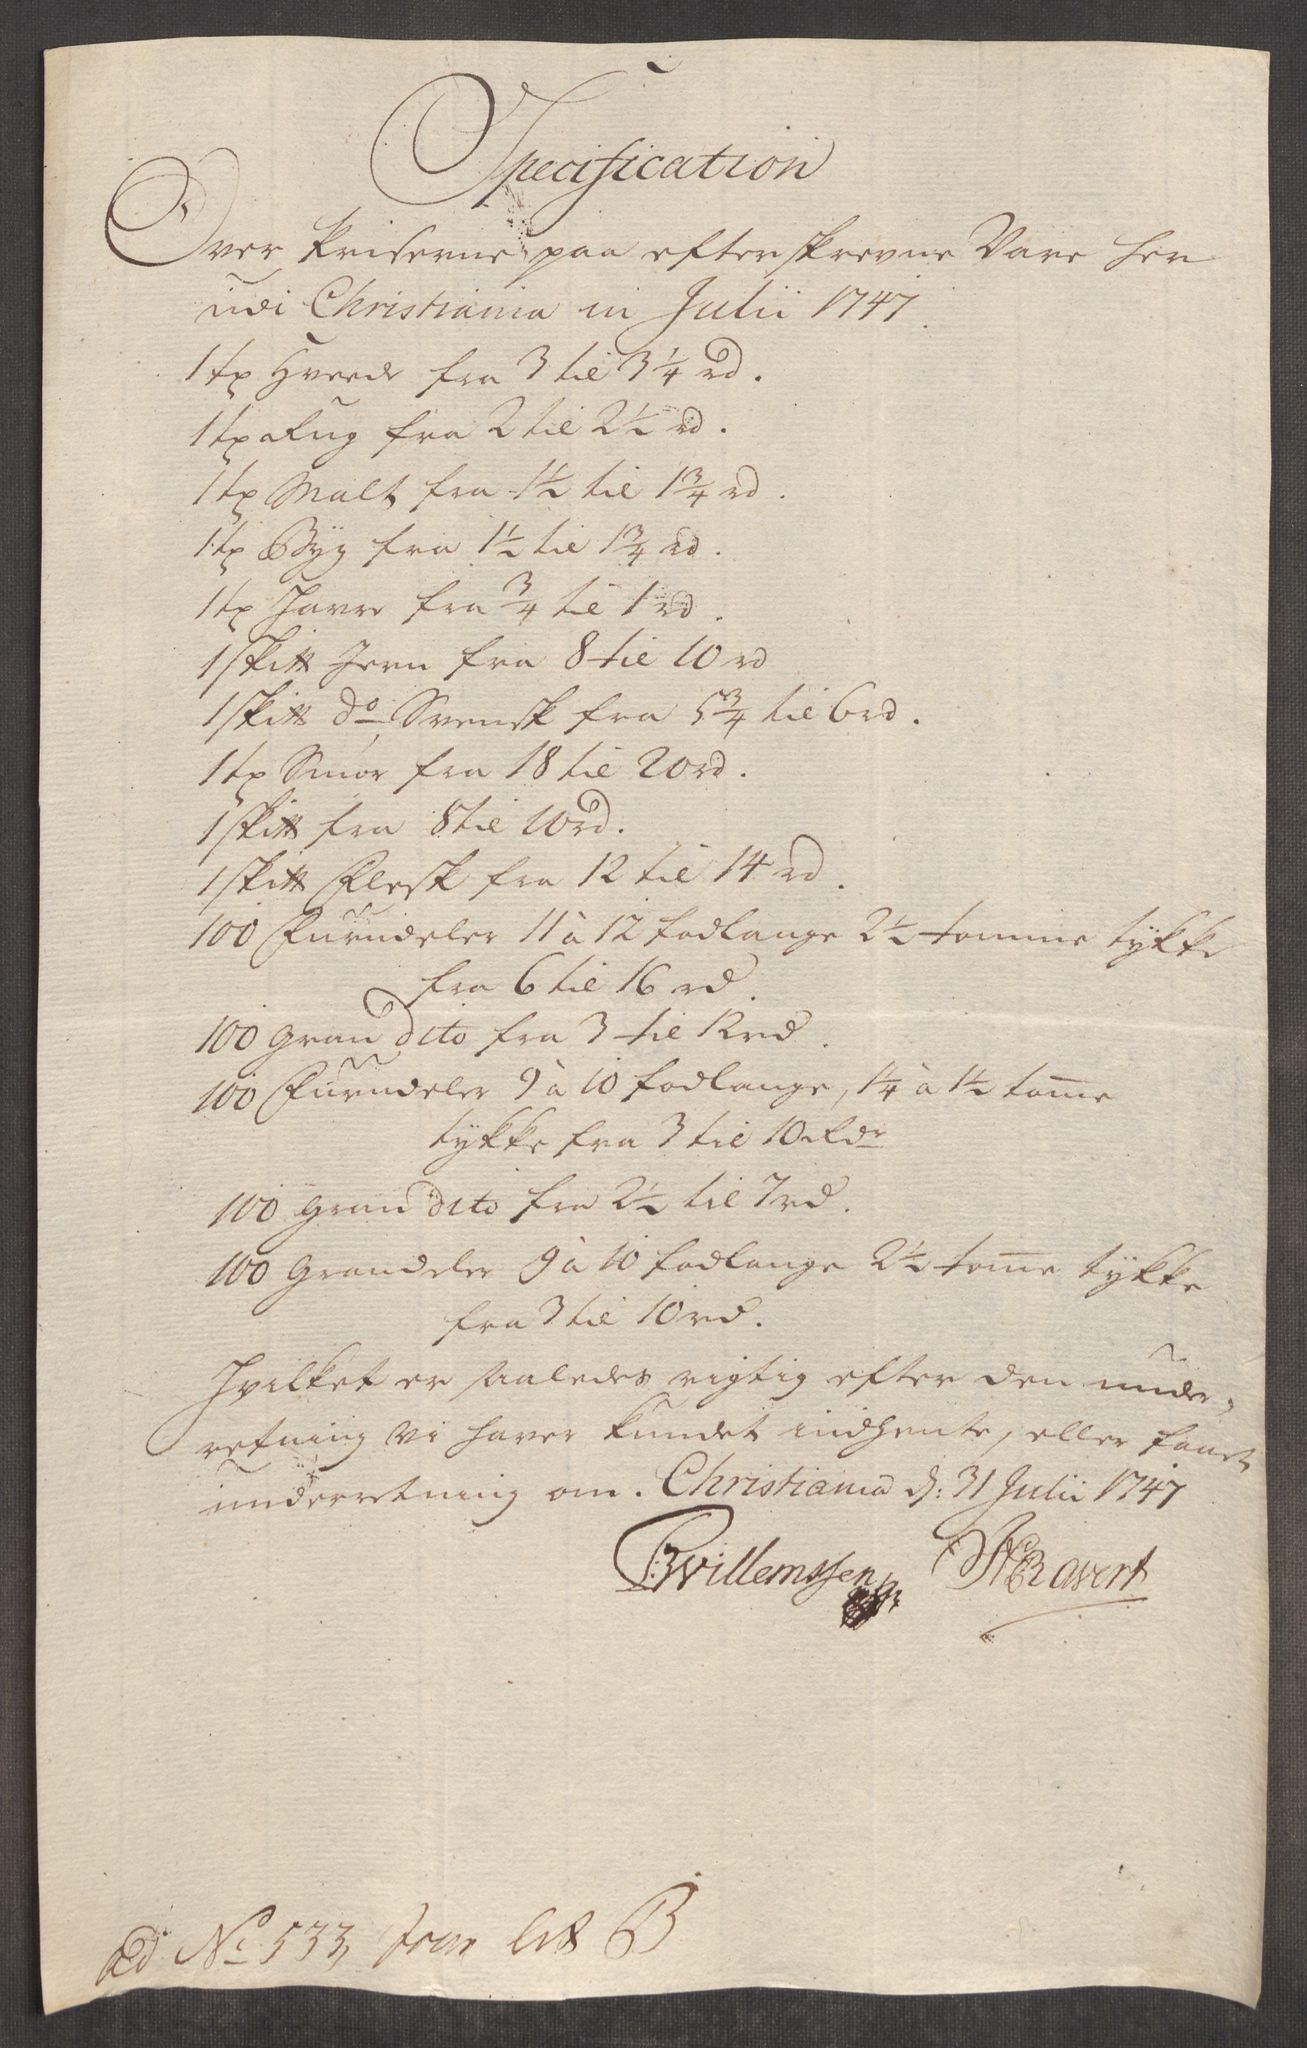 Specification
Over Priserne paa efterskrevne Vare her
udi Christiania in Julii 1747.
1 tø Hveede fra 3 til 3 1/4 rd.
1 tø Rug fra 2 til 2 1/2 rd.
1 tø Malt fra 1 1/2 til 1 3/4 rd.
1 tø Byg fra 1 1/2 til 1 3/4 rd.
1 tø Havre fra 3/4 til 1 rd.
1 skll Jern fra 8 til 10 rd
1 skll do Svensk fra 5 3/4 til 6 rd.
1 tø Smör fra 18 til 20 rd.
1 skll fra 8 til 10 rd.
1 skll Flesk fra 12 til 14 rd.
100 Furudeler 11 à 12 fodlange 2 1/2 tomme tÿkke
fra 6 til 16 rd.
100 gran dito fra 3 til 12 rd.
100 Furudeler 9 à 10 fodlange, 1 1/4 à 1 1/2 tom̅e
tÿkke fra 3 til 10 Rdr
100 gran dito fra 2 1/2 til 7 rd.
100 Grandeler 9 à 10 fodlange 2 1/2 tom̅e tÿkke
fra 3 til 10 rd.
Hvilket er saaledes rigtig efter den under,
retning vi haver kundet indhente, eller faaet
underretning om. Christiania d: 31 Julii 1747
Willemssen Ravert
Ad No 533, Litr B